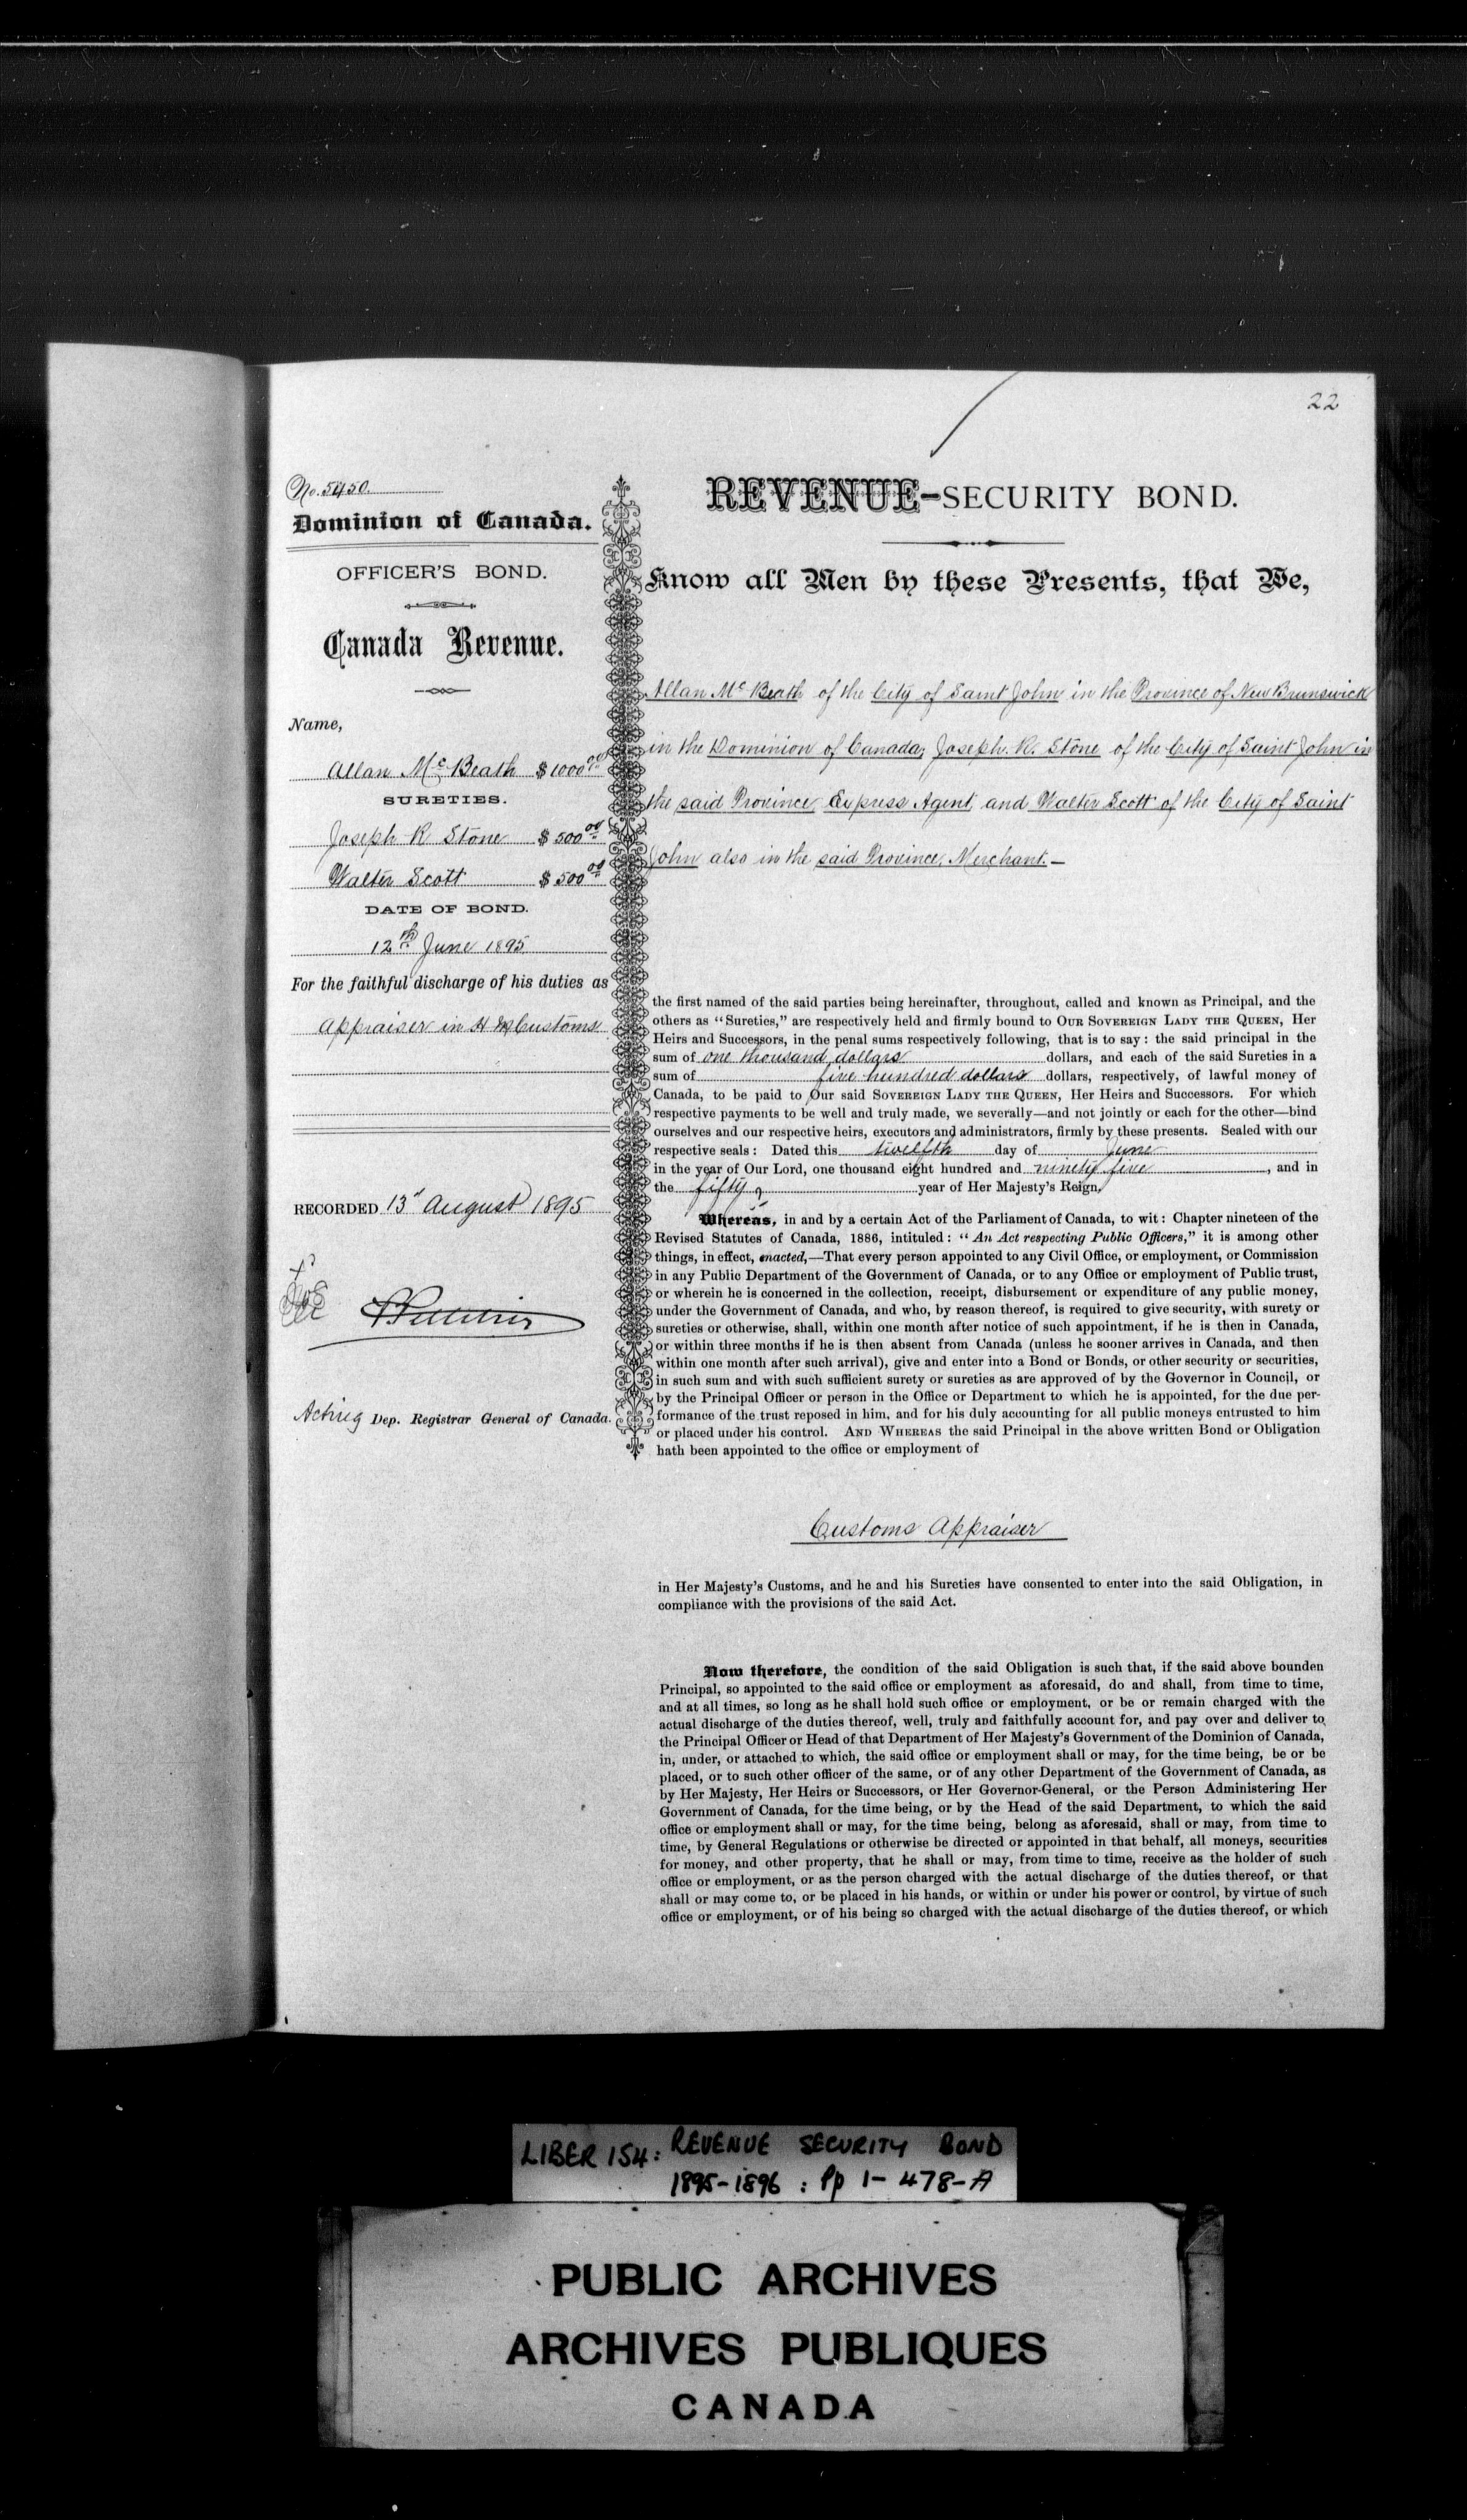 22
No. 5450.
Dominion of Canada.
OFFICER'S BOND.
Canada Revenue.
Name,
Allan McBeath $1000 00
SURETIES.
Joseph R Stone $500 00
Walter Scott $500 00
DATE OF BOND.
12th June 1895
For the faithful discharge of his duties as
Appraiser in H M Customs
RECORDED 13th August 1895
Acting Dep. Registrar General of Canada.
REVENUE-SECURITY BOND.
Know all Men by these Presents, that We,
Allan McBeath of the City of Saint John in the Province of New Brunswick
in the Dominion of Canada, Joseph. R. Stone of the City of Saint John in
the said Province, Express Agent, and Walter Scott of the City of Saint
John also in the said Province, Merchant.—
the first named of the said parties being hereinafter, throughout, called and known as Principal, and the
others as "Sureties," are respectively held and firmly bound to OUR SOVEREIGN LADY THE QUEEN, Her
Heirs and Successors, in the penal sums respectively following, that is to say: the said principal in the
sum of one thousand dollars dollars, and each of the said Sureties in a
sum of five hundred dollars dollars, respectively, of lawful money of
Canada, to be paid to Our said SOVEREIGN LADY THE QUEEN, Her Heirs and Successors. For which
respective payments to be well and truly made, we severally—and not jointly or each for the other—bind
ourselves and our respective heirs, executors and administrators, firmly by these presents. Sealed with our
respective seals: Dated this twelfth day of June
in the year of Our Lord, one thousand eight hundred and ninety five, and in
the fifty year of Her Majesty's Reign.
Whereas, in and by a certain Act of the Parliament of Canada, to wit: Chapter nineteen of the
Revised Statutes of Canada, 1886, intituled: "An Act respecting Public Officers," it is among other
things, in effect, enacted,—That every person appointed to any Civil Office, or employment, or Commission
in any Public Department of the Government of Canada, or to any Office or employment of Public trust,
or wherein he is concerned in the collection, receipt, disbursement or expenditure of any public money,
under the Government of Canada, and who, by reason thereof, is required to give security, with surety or
sureties or otherwise, shall, within one month after notice of such appointment, if he is then in Canada,
or within three months if he is then absent from Canada (unless he sooner arrives in Canada, and then
within one month after such arrival), give and enter into a Bond or Bonds, or other security or securities,
in such sum and with such sufficient surety or sureties as are approved of by the Governor in Council, or
by the Principal Officer or person in the Office or Department to which he is appointed, for the due per-
formance of the trust reposed in him, and for his duly accounting for all public moneys entrusted to him
or placed under his control. AND WHEREAS the said Principal in the above written Bond or Obligation
hath been appointed to the office or employment of
Customs Appraiser
in Her Majesty's Customs, and he and his Sureties have consented to enter into the said Obligation, in
compliance with the provisions of the said Act.
Now therefore, the condition of the said Obligation is such that, if the said above bounden
Principal, so appointed to the said office or employment as aforesaid, do and shall, from time to time,
and at all times, so long as he shall hold such office or employment, or be or remain charged with the
actual discharge of the duties thereof, well, truly and faithfully account for, and pay over and deliver to
the Principal Officer or Head of that Department of Her Majesty's Government of the Dominion of Canada,
in, under, or attached to which, the said office or employment shall or may, for the time being, be or be
placed, or to such other officer of the same, or of any other Department of the Government of Canada, as
by Her Majesty, Her Heirs or Successors, or Her Governor-General, or the Person Administering Her
Government of Canada, for the time being, or by the Head of the said Department, to which the said
office or employment shall or may, for the time being, belong as aforesaid, shall or may, from time to
time, by General Regulations or otherwise be directed or appointed in that behalf, all moneys, securities
for money, and other property, that he shall or may, from time to time, receive as the holder of such
office or employment, or as the person charged with the actual discharge of the duties thereof, or that
shall or may come to, or be placed in his hands, or within or under his power or control, by virtue of such
office or employment, or of his being so charged with the actual discharge of the duties thereof, or which
LIBER 154: REVENUE SECURITY BOND
1895-1896 : Pp 1- 478-A
PUBLIC ARCHIVES
ARCHIVES PUBLIQUES
CANADA